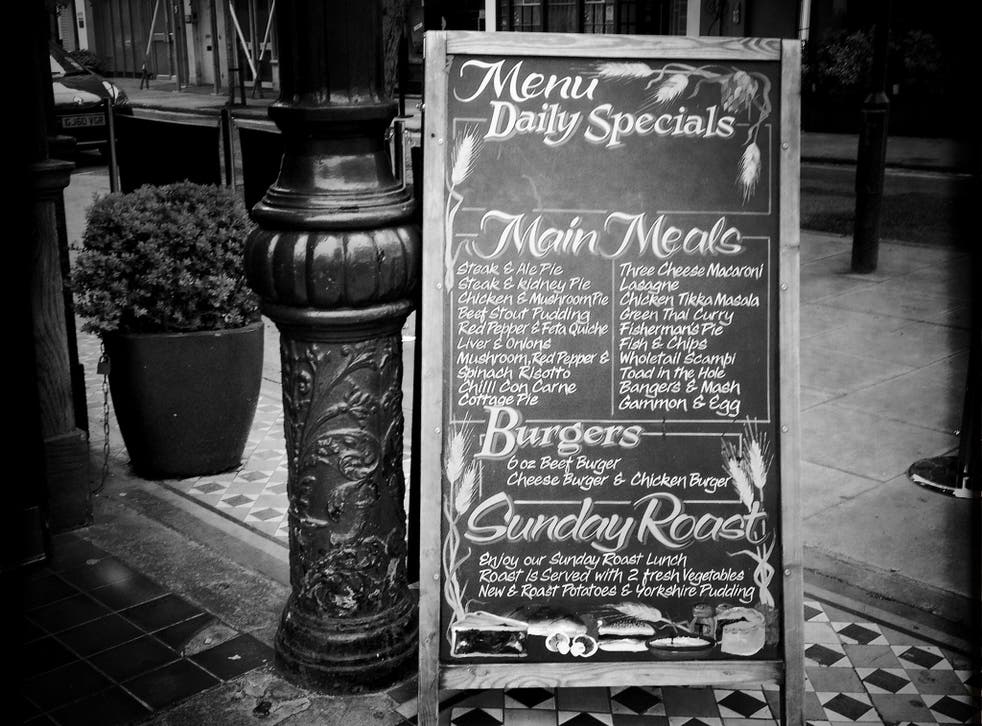 GJ60 VGR
Menu
Daily Specials
Main Meals
Steak & Ale Pie
Steak & Kidney Pie
Chicken & Mushroom Pie
Beef Stout Pudding
Red Pepper & Feta Quiche
Liver & Onions
Mushroom, Red Pepper &
Spinach Risotto
Chilli Con Carne
Cottage Pie
Three Cheese Macaroni
Lasagne
Chicken Tikka Masala
Green Thai Curry
Fisherman's Pie
Fish & Chips
Wholetail Scampi
Toad in the Hole
Bangers & Mash
Gammon & Egg
Burgers
6 oz Beef Burger
Cheese Burger & Chicken Burger
Sunday Roast
Enjoy our Sunday Roast Lunch
Roast Is Served with 2 fresh Vegetables
New & Roast Potatoes & Yorkshire Pudding